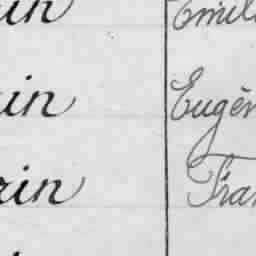 in Émil
in Eugèn
rin Fran